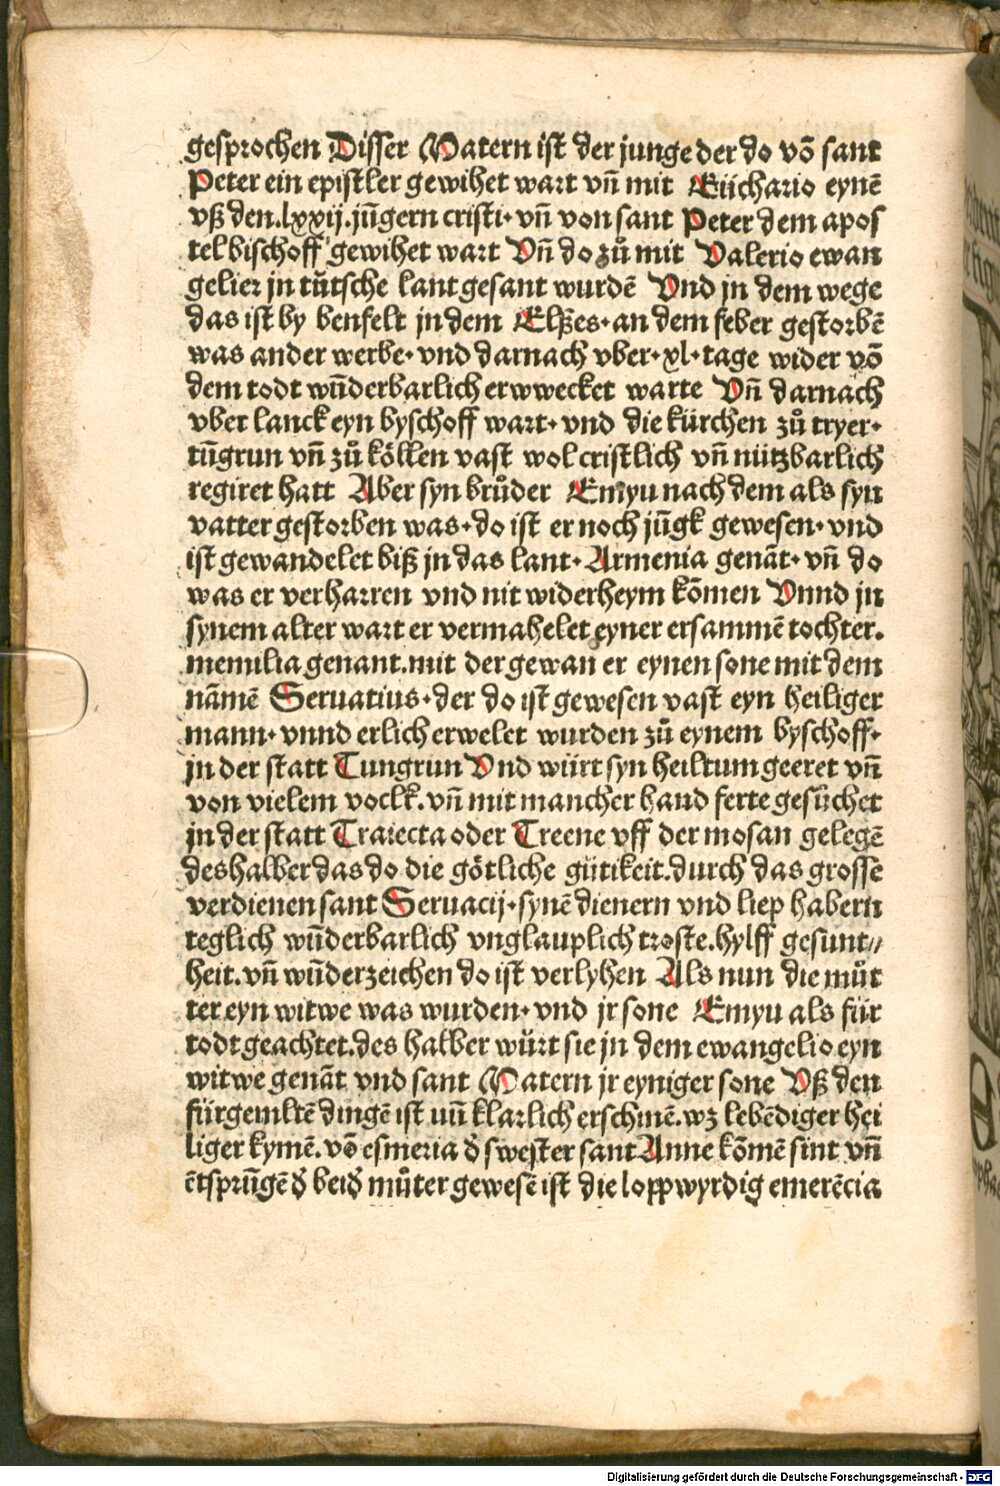 gesprochen Disser Matern ist der junge der do võ sant
Peter ein epistler gewihet wart vñ mit Eüchario eynē
vß den.lxxij.jũgern cristi·vñ von sant Peter dem apos
tel bischoff gewihet wart Vñ do zů mit Valerio ewan
gelier jn tütsche lant gesant wurdē Vnd jn dem wege
das ist by benfelt jn dem Elßes·an dem feber gestorbē
was ander werbe·vnd darnach vber·xl·tage wider võ
dem todt wũderbarlich erwwecket warte Vñ darnach
vber lanck eyn byschoff wart·vnd die kürchen zů tryer·
tũgrun vñ zů köllen vast wol cristlich vñ nützbarlich
regiret hatt Aber syn brůder Emyu nach dem als syn
vatter gestorben was·do ist er noch jũgk gewesen·vnd
ist gewandelet biß jn das lant·Armenia genãt·vñ do
was er verharren vnd nit widerheym kõmen Vnnd jn
synem alter wart er vermahelet eyner ersammē tochter.
memilia genant.mit der gewan er eynen sone mit dem
nãmē Seruatius·der do ist gewesen vast eyn heiliger
mann·vnnd erlich erwelet wurden zů eynem byschoff·
jn der statt Tungrun Vnd würt syn heiltum geeret vñ
von vielem voclk.vñ mit mancher hand ferte gesůchet
jn der statt Traiecta oder Treene vff der mosan gelegē
deshalber das do die götliche gütikeit.durch das grosse
verdienen sant Seruacij·synē dienern vnd liep habern
teglich wũderbarlich vnglauplich troste.hylff gesunt//
heit.vñ wũderzeichen do ist verlyhen Als nun die můt
ter eyn witwe was wurden·vnd jr sone Emyu als für
todt geachtet.des halber würt sie jn dem ewangelio eyn
witwe genãt vnd sant Matern jr eyniger sone Vß den
fürgemltē dingē ist nũ klarlich erschinē.wz lebēdiger hei
liger kymē.võ esmeria d̕ swester sant Anne kõmē sint vñ
ētsprũgē d̕ beid̕ můter gewesē ist die lopp wyrdig emerēcia
Digitalisierung gefördert durch die Deutsche Forschungsgemeinschaft - DFG